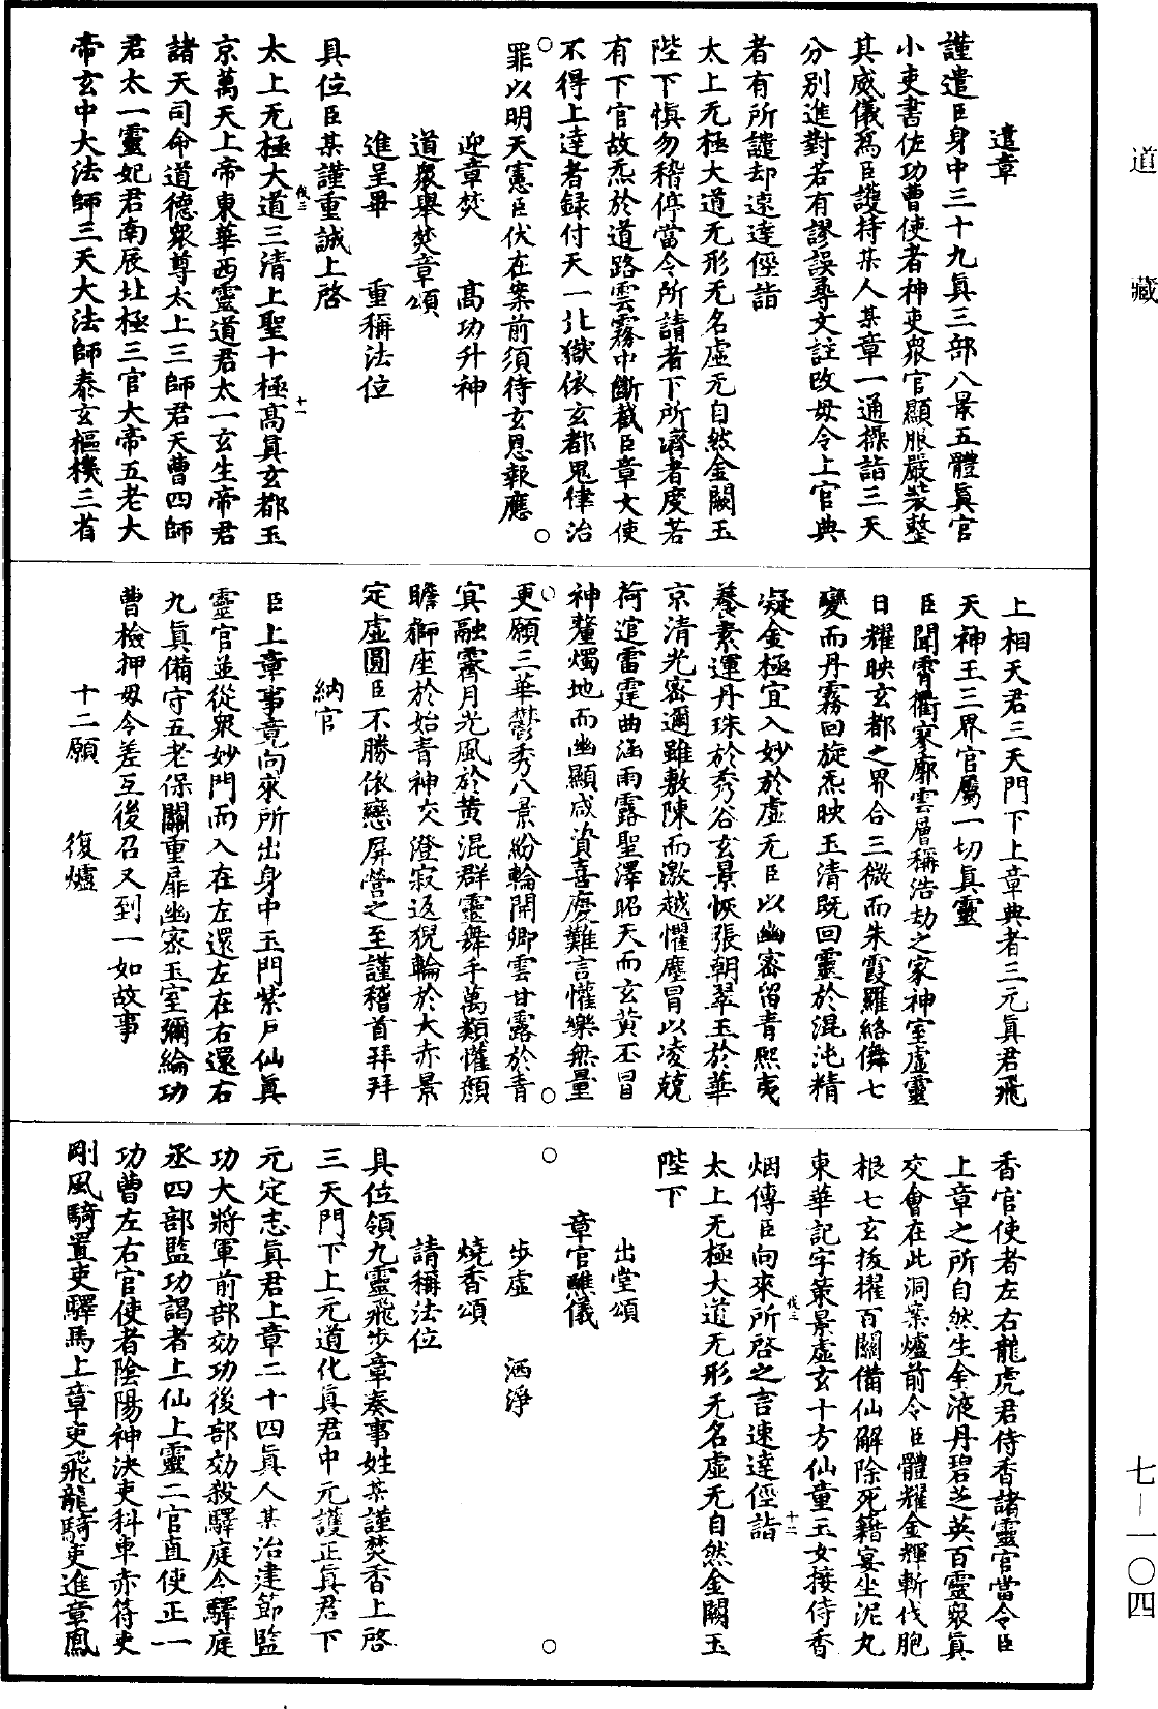 道藏
遣章
謹遣臣身中三十九真三部八景五體真官
小吏書佐功曹使者神吏衆官顯服嚴裝整
其威儀爲臣護持某人某章一通操詣三天
分別進對若有謬誤尋文註改毋令上官典
者有所譴却遠達徑詣
太上无極大道无形无名虛无自然金闕玉
陛下愼勿稽停當令所請者下所濟者度若
有下官故炁於道路雲霧中斷截臣章文使
不得上達者錄付天一北獄依玄都鬼律治
罪以明天憲臣伏在案前須待玄恩報應
迎章焚　高功升神
道衆舉焚章頌
進呈畢　重稱法位
具位臣某謹重誠上啓
太上无極大道三清上聖十極高真玄都玉
京萬天上帝東華西靈道君太一玄生帝君
諸天司命道德衆尊太上三師君天曹四師
君太一靈妃君南辰北極三官大帝五老大
帝玄中大法師三天大法師泰玄樞機三省
上相天君三天門下上章典者三元真君飛
天神王三界官屬一切真靈
臣聞霄衢寥廓雲層稱浩劫之家神室虛靈
日耀映玄都之界合三微而朱霞羅絡儛七
變而丹霧回旋炁映玉清既回靈於混沌精
凝金極宜入妙於虛无臣以幽密留青熙夷
養素運丹珠於秀谷玄景恢張朝翠玉於華
京清光密邇雖敷陳而激越懼塵冒以凌兢
荷逭雷霆曲涵雨露聖澤昭天而玄黃丕冒
神釐燭地而幽顯咸資喜慶難言懽樂無量
更願三華鬱秀八景紛輪開卿雲甘露於青
冥融霽月光風於黃混群靈舞手萬類懽顏
瞻獅座於始青神交澄寂返猊輪於大赤景
定虛圓臣不勝依戀屏營之至謹稽首拜拜
納官
臣上章事竟向來所出身中玉門紫戶仙真
靈官並從衆妙門而入在左還左在右還右
九真備守五老保關重扉幽密玉室彌綸功
曹檢押毋令差互後召又到一如故事
十二願　復爐
香官使者左右龍虎君侍香諸靈官當令臣
上章之所自然生金液丹碧芝英百靈衆真
交會在此洞案爐前令臣體耀金輝斬伐胞
根七玄拔擢百關備仙解除死籍宴坐泥丸
東華記字策景虛玄十方仙童玉女接侍香
烟傳臣向來所啓之言速達徑詣
太上无極大道无形无名虛无自然金闕玉
陛下
出堂頌
章官醮儀
步虛　洒淨
燒香頌
請稱法位
具位領九靈飛步章奏事姓某謹焚香上啓
三天門下上元道化真君中元護正真君下
元定志真君上章二十四真人某治建節監
功大將軍前部効功後部効殺驛庭令驛庭
丞四部監功謁者上仙上靈二官直使正一
功曹左右官使者陰陽神決吏科車赤符吏
剛風騎置吏驛馬上章吏飛龍騎吏進章鳳
七－一〇四